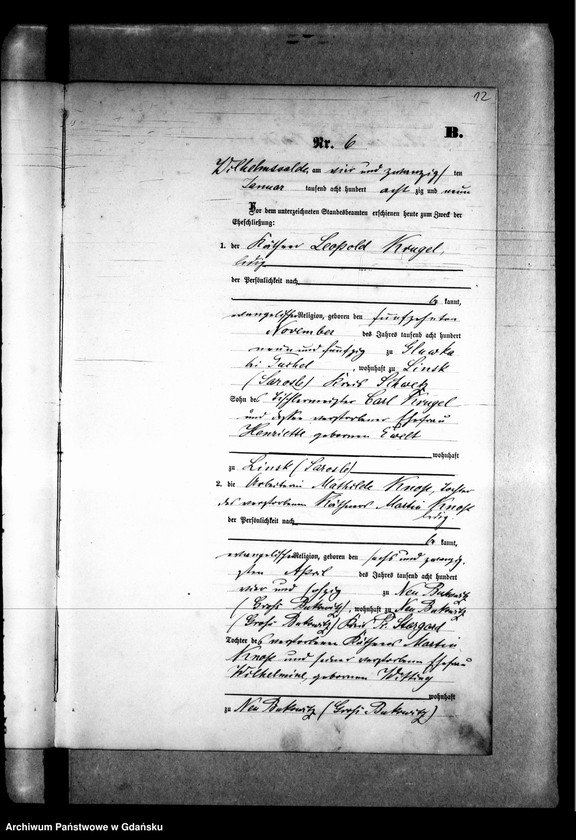 12
B.
Nr. 6
Wilhelmswalde, am vier und zwanzig ten
Januar tausend acht hundert acht zig und neun
Vor dem unterzeichneten Standesbeamten erschienen heute zum Zweck der
Eheschließung:
1. der Käthner Leopold Krugel,
ledig
der Persönlichkeit nach
be kannt,
evangelischer Religion, geboren den fünfzehnten
November des Jahres tausend acht hundert
neun und fünfzig zu
bei Tuchel, wohnhaft zu Linsk
Kreis Schwetz
Sohn des Tischlermeister Carl Krugel
und dessen verstorbener Ehefrau
Henriette geborenen Ewelt
wohnhaft
zu Linsk
2. die Arbeiterin Mathilde Knoss, Tochter
des verstorbenen Käthners Martin Knoss
ledig
der Persönlichkeit nach
be kannt,
evangelischer Religion, geboren den sechs und zwanzig-
sten April des Jahres tausend acht hundert
vier und sechzig zu Neu Bukowitz
(Gross Bukowitz), wohnhaft zu Neu Bukowitz
(Gross Bukowitz) Kreis Pr. Stargard
Tochter des verstorbenen Käthners Martin
Knoss und seiner verstorbenen Ehefrau
Wilhelmine, geborenen Witting
wohnhaft
zu Neu Bukowitz (Gross Bukowitz)
Archiwum Państwowe w Gdańsku